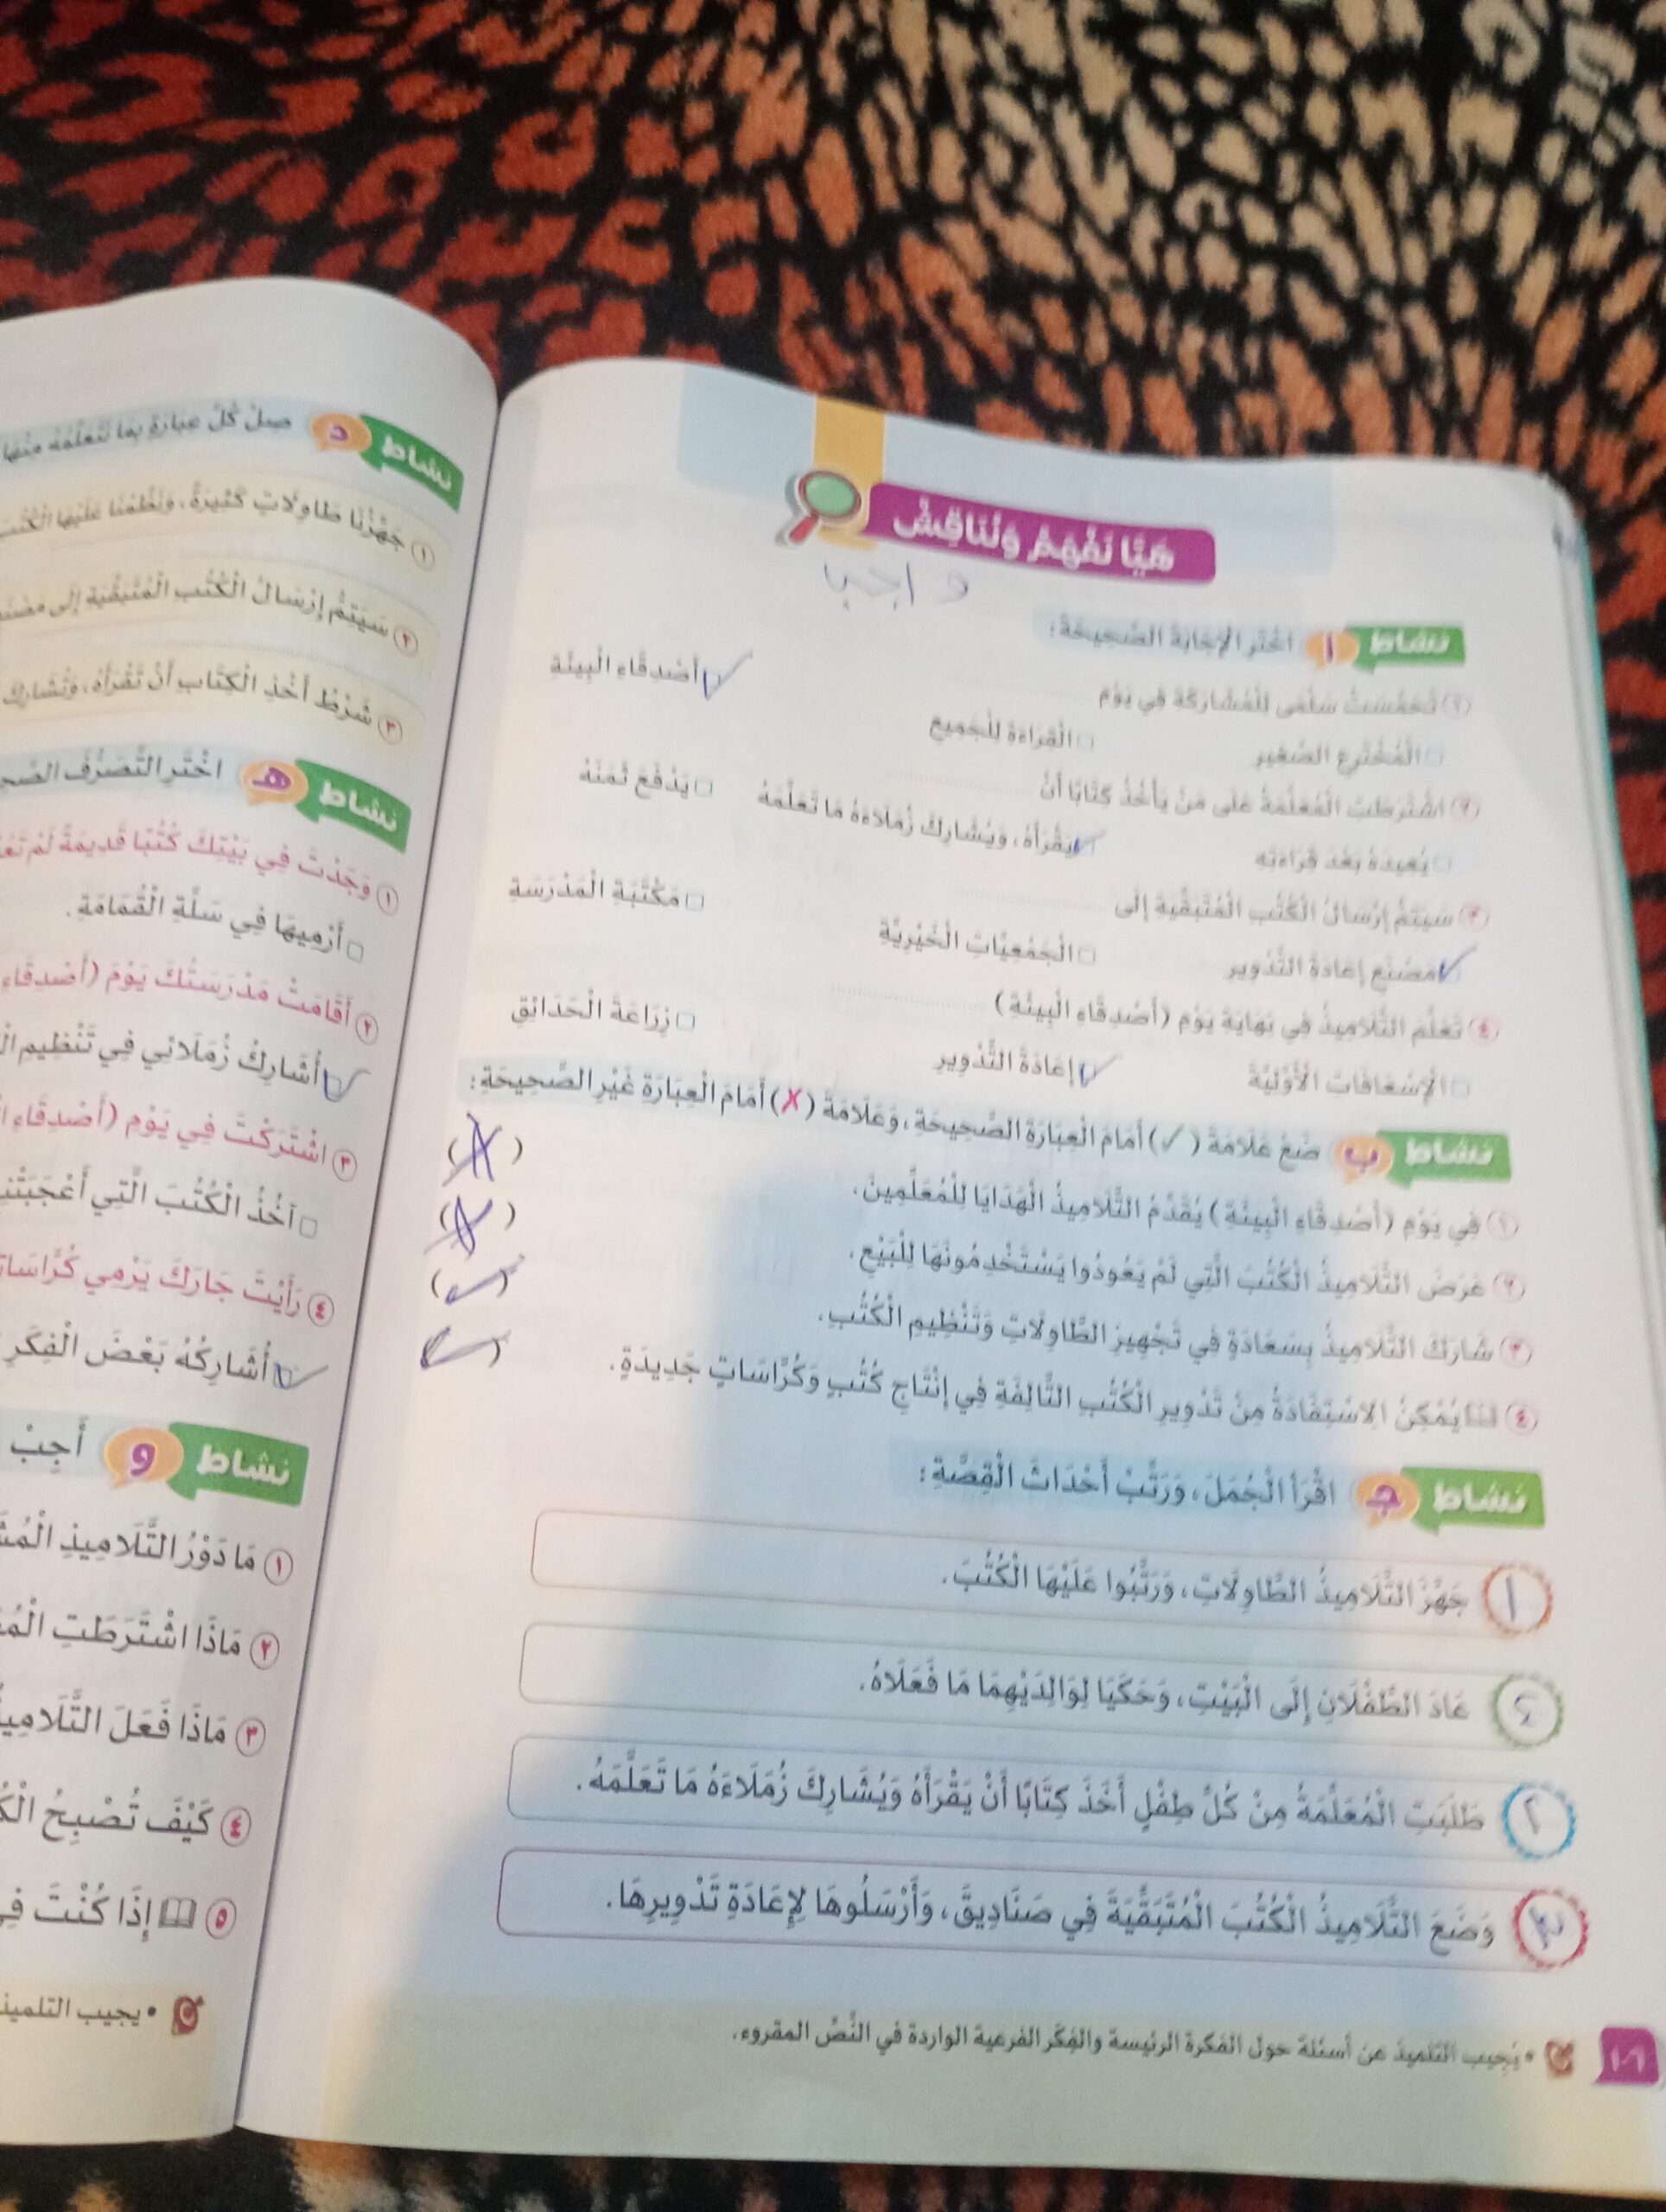 هَيَّا نَفْهَمُ وَنُنَاقِشُ
واجب
نشاط أ اخْتَرِ الْإِجَابَةَ الصَّحِيحَةَ:
١ تَحَمَّسَتْ سَلْمَى لِلْمُشَارَكَةِ فِي يَوْمِ
الْمُخْتَرِعِ الصَّغِيرِ الْقِرَاءَةِ لِلْجَمِيعِ أَصْدِقَاءِ الْبِيئَةِ
٢ اشْتَرَطَتِ الْمُعَلِّمَةُ عَلَى مَنْ يَأْخُذُ كِتَابًا أَنْ
يُعِيدَهُ بَعْدَ قِرَاءَتِهِ يَقْرَأَهُ، وَيُشَارِكَ زُمَلَاءَهُ مَا تَعَلَّمَهُ يَدْفَعَ ثَمَنَهُ
٣ سَيَتِمُّ إِرْسَالُ الْكُتُبِ الْمُتَبَقِّيَةِ إِلَى
مَصْنَعِ إِعَادَةِ التَّدْوِيرِ الْجَمْعِيَّاتِ الْخَيْرِيَّةِ مَكْتَبَةِ الْمَدْرَسَةِ
٤ تَعَلَّمَ التَّلَامِيذُ فِي نِهَايَةِ يَوْمِ (أَصْدِقَاءِ الْبِيئَةِ)
الْإِسْعَافَاتِ الْأَوَّلِيَّةَ إِعَادَةَ التَّدْوِيرِ زِرَاعَةَ الْحَدَائِقِ
نشاط ب ضَعْ عَلَامَةَ (✓) أَمَامَ الْعِبَارَةِ الصَّحِيحَةِ، وَعَلَامَةَ (✗) أَمَامَ الْعِبَارَةِ غَيْرِ الصَّحِيحَةِ:
١ فِي يَوْمِ (أَصْدِقَاءِ الْبِيئَةِ) يُقَدِّمُ التَّلَامِيذُ الْهَدَايَا لِلْمُعَلِّمِينَ. (✗)
٢ عَرَضَ التَّلَامِيذُ الْكُتُبَ الَّتِي لَمْ يَعُودُوا يَسْتَخْدِمُونَهَا لِلْبَيْعِ. (✗)
٣ شَارَكَ التَّلَامِيذُ بِسَعَادَةٍ فِي تَجْهِيزِ الطَّاوِلَاتِ وَتَنْظِيمِ الْكُتُبِ. (✓)
٤ يُمْكِنُ الِاسْتِفَادَةُ مِنْ تَدْوِيرِ الْكُتُبِ التَّالِفَةِ فِي إِنْتَاجِ كُتُبٍ وَكُرَّاسَاتٍ جَدِيدَةٍ. (✓)
نشاط جـ اقْرَأِ الْجُمَلَ، وَرَتِّبْ أَحْدَاثَ الْقِصَّةِ:
١ جَهَّزَ التَّلَامِيذُ الطَّاوِلَاتِ، وَرَتَّبُوا عَلَيْهَا الْكُتُبَ.
٤ عَادَ الطِّفْلَانِ إِلَى الْبَيْتِ، وَحَكَيَا لِوَالِدَيْهِمَا مَا فَعَلَاهُ.
٢ طَلَبَتِ الْمُعَلِّمَةُ مِنْ كُلِّ طِفْلٍ أَخَذَ كِتَابًا أَنْ يَقْرَأَهُ وَيُشَارِكَ زُمَلَاءَهُ مَا تَعَلَّمَهُ.
٣ وَضَعَ التَّلَامِيذُ الْكُتُبَ الْمُتَبَقِّيَةَ فِي صَنَادِيقَ، وَأَرْسَلُوهَا لِإِعَادَةِ تَدْوِيرِهَا.
• يُجيب التلميذ عن أسئلة حول الفكرة الرئيسة والفِكَر الفرعية الواردة في النَّصِّ المقروء.
نشاط د صِلْ كُلَّ عِبَارَةٍ بِمَا تَتَعَلَّمُهُ مِنْهَا
١ جَهَّزْنَا طَاوِلَاتٍ كَثِيرَةً، وَنَظَّمْنَا عَلَيْهَا
٢ سَيَتِمُّ إِرْسَالُ الْكُتُبِ الْمُتَبَقِّيَةِ إِلَى
٣ شَرْطُ أَخْذِ الْكِتَابِ أَنْ تَقْرَأَهُ، وَتُشَارِكَ
نشاط هـ اخْتَرِ التَّصَرُّفَ
١ وَجَدْتَ فِي بَيْتِكَ كُتُبًا قَدِيمَةً لَمْ
أَرْمِيهَا فِي سَلَّةِ الْقُمَامَةِ.
٢ أَقَامَتْ مَدْرَسَتُكَ يَوْمَ (أَصْدِقَاءِ
أُشَارِكُ زُمَلَائِي فِي تَنْظِيمِ
٣ اشْتَرَكْتَ فِي يَوْمِ (أَصْدِقَاءِ
آخُذُ الْكُتُبَ الَّتِي
٤ رَأَيْتَ جَارَكَ يَرْمِي
أُشَارِكُهُ بَعْضَ الْفِكَرِ
نشاط و أَجِبْ
١ مَا دَوْرُ التَّلَامِيذِ
٢ مَاذَا اشْتَرَطَتِ
٣ مَاذَا فَعَلَ
٤ كَيْفَ تُصْبِحُ
٥ إِذَا كُنْتَ
• يجيب التلميذ